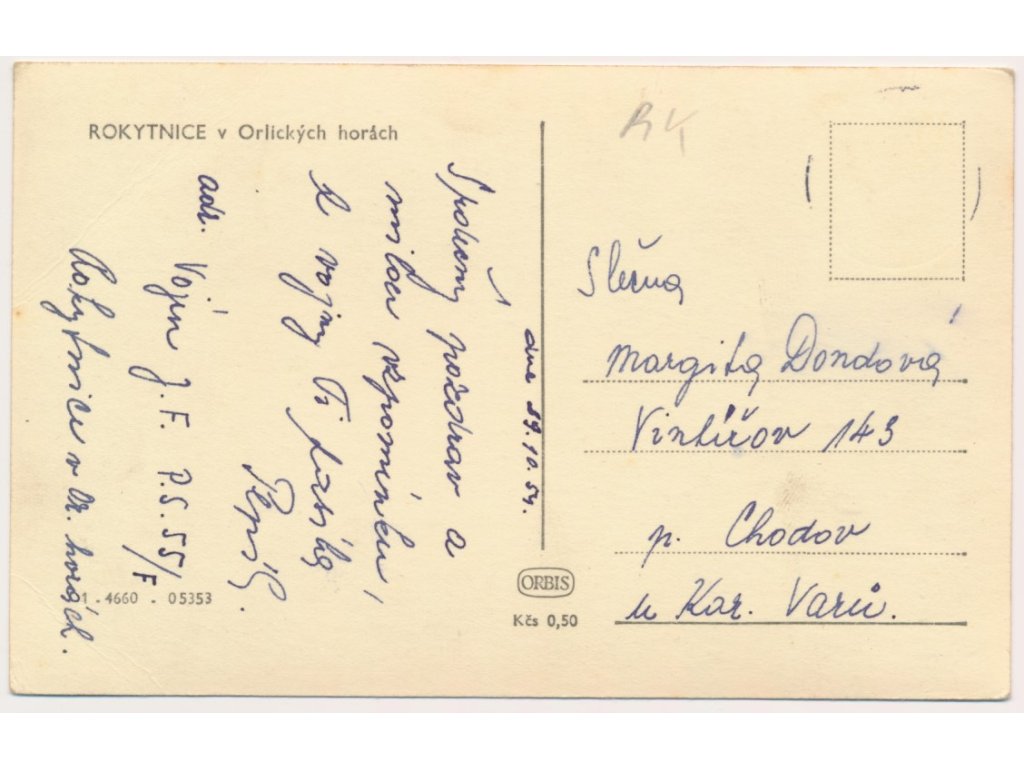 ROKYTNICE v Orlických horách
RK
dne 19.10.54.
Společný pozdrav a
milou vzpomínku
z vojny Ti
Pepík.
adr. Vojín J. F. P.S. 55/F
Rokytnice v Or. horách.
Slečna
Margita Dondová
Vintířov 143
p. Chodov
u Kar. Varů.
1 - 4660 - 05353
ORBIS
Kčs 0,50